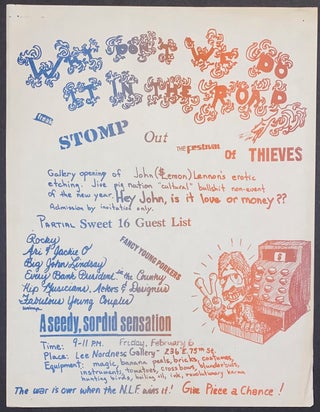 WHY DON'T WE DO
IT IN THE ROAD
STOMP Out THE OF THIEVES
Gallery opening of John (Lemon) Lennon's erotic
etching. Jive pig nation "cultural" bullshit non-event
of the new year. Hey John, is it love or money??
Admission by invitation only.
PARTIAL Sweet 16 Guest List
Rocky
Ari & Jackie O
Big John Lindsay
Every Bank President in the Country
Hip Musicians, Actors & Designers
Fabulous Young Couples
FANCY YOUNG PORKERS
A seedy, sordid sensation
Time: 9-11 P.M. Friday, February 6
Place: Lee Nordness Gallery - 236 E 75th St.
Equipment: magic banana peels, bricks, costumes,
instruments, tomatoes, crossbows, blunderbuss,
hunting birds, boiling oil, ink, revolutionary karma
The war is over when the N.L.F. wins it! Give Piece a Chance!